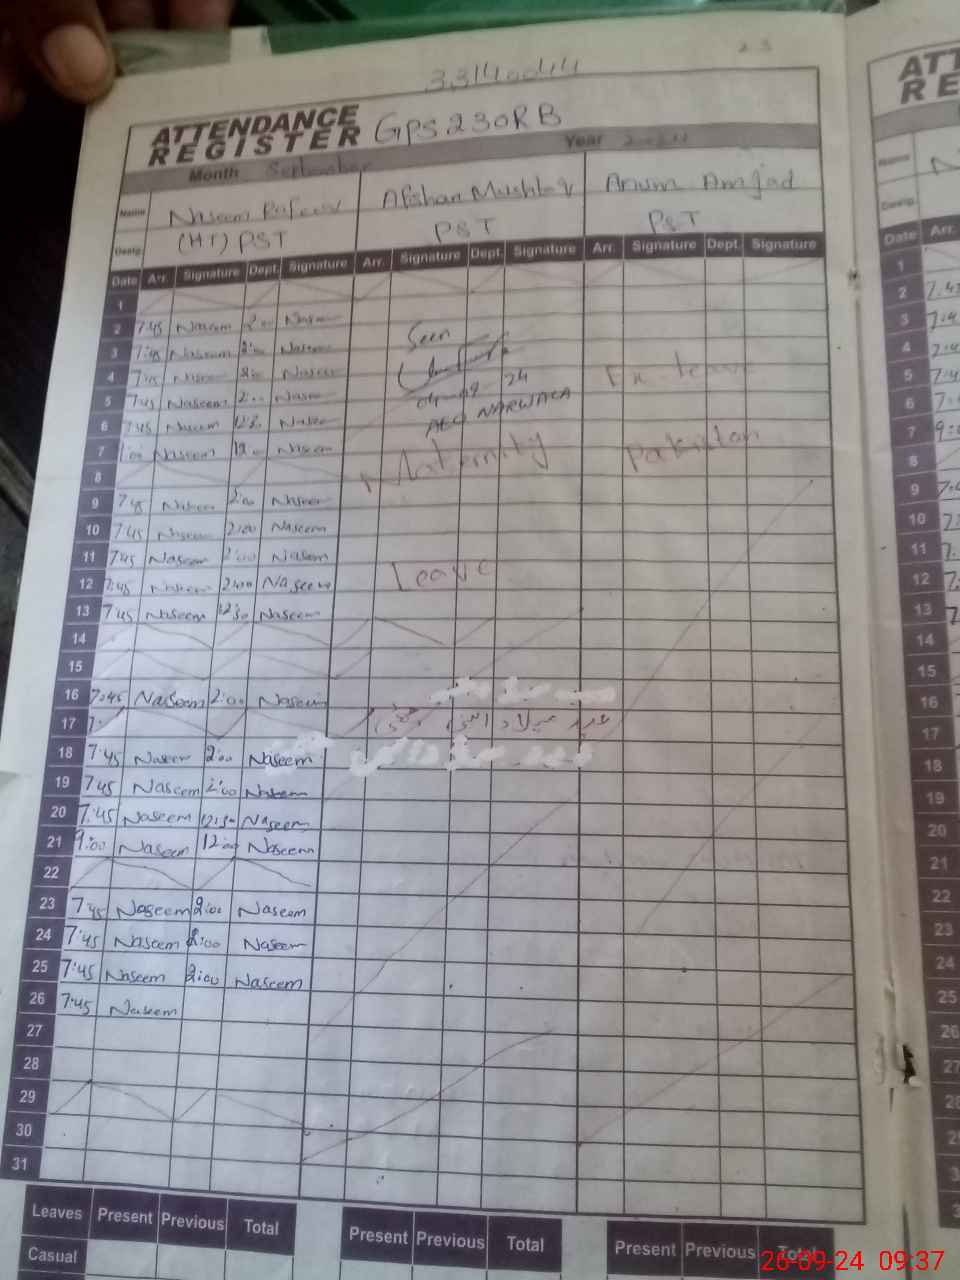 23
33140044
ATTENDANCE
REGISTER GPS 230RB
Month September Year
Name Naseem Afshan Mushtaq Anum Amjad
Desig. (H.T) PST PST PST
Date Arr. Signature Dept. Signature Arr. Signature Dept. Signature Arr. Signature Dept. Signature
1
2 7:45 Naseem 2:00 Naseem
Seen
3 7:45 Naseem 2:00 Naseem
4 7:45 Naseem 2:00 Naseem Ex-Leave
04-09 24
5 7:45 Naseem 2:00 Naseem
AEO NARWALA
6 7:45 Naseem 12:30 Naseem
7 Naseem 12:00 Naseem Maternity Pakistan
8
9 7:45 Naseem 2:00 Naseem
10 7:45 Naseem 2:00 Naseem
11 7:45 Naseem 2:00 Naseem
12 7:45 Naseem 2:00 Naseem Leave
13 7:45 Naseem 12:30 Naseem
14
15
16 7:45 Naseem 2:00 Naseem
17 عید میلاد النبی
18 7:45 Naseem 2:00 Naseem
19 7:45 Naseem 2:00 Naseem
20 7:45 Naseem 12:30 Naseem
21 9:00 Naseem 12:00 Naseem
22
23 7:45 Naseem 2:00 Naseem
24 7:45 Naseem 2:00 Naseem
25 7:45 Naseem 2:00 Naseem
26 7:45 Naseem
27
28
29
30
31
Leaves Present Previous Total Present Previous Total Present Previous Total
Casual
ATT
RE
Name
Desig.
Date Arr.
1
2
3
4
5
6
7
8
9
10
11
12
13
14
15
16
17
18
19
20
21
22
23
24
25
26
27
28
26-09-24 09:37